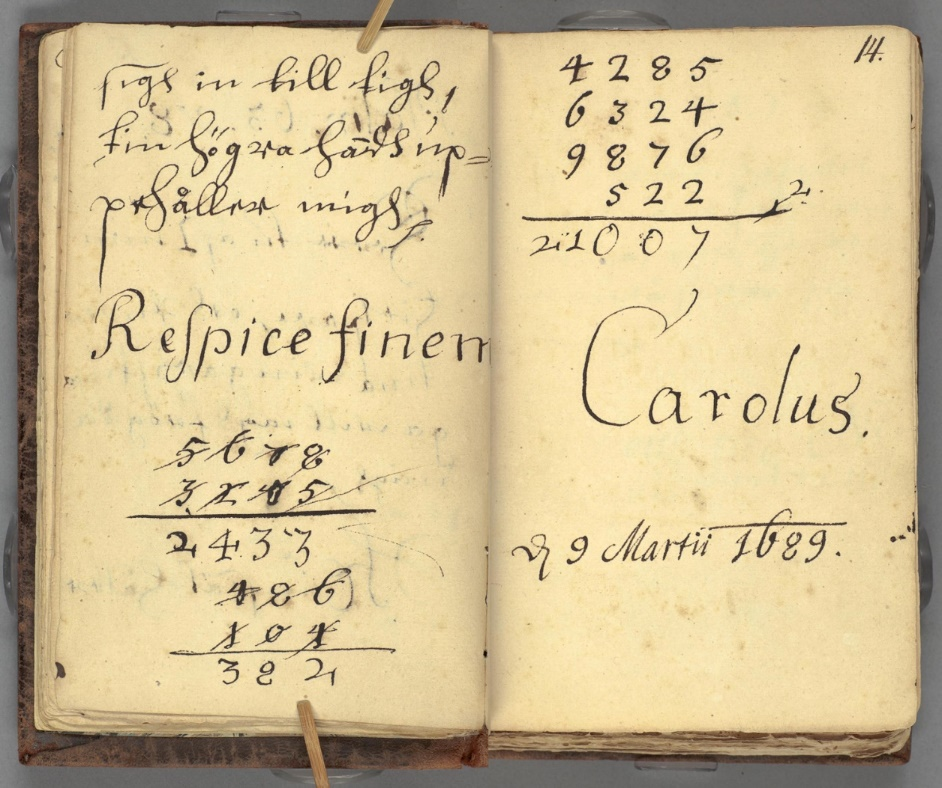 sigh in till tigh,
tin högra hādh up=
pehåller migh.
Respice finem
5678
3245
2433
486
104
382
14.
4285
6324
9876
522 2
21007
Carolus.
d 9 Martii 1689.